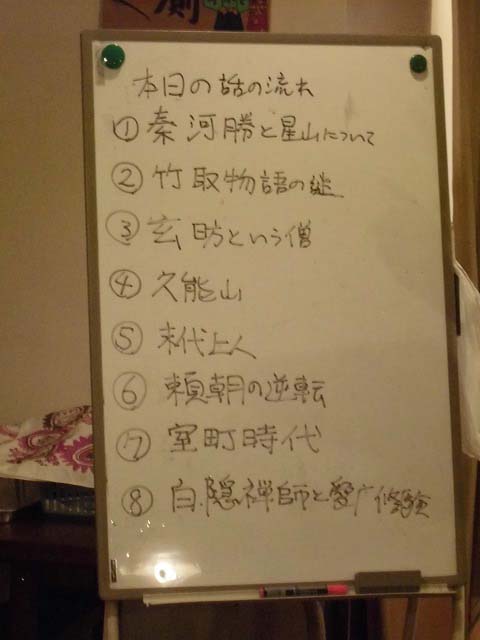 本日の話の流れ
① 秦河勝と星山について
② 竹取物語の謎
③ 玄昉という僧
④ 久能山
⑤ 末代上人
⑥ 頼朝の逆転
⑦ 室町時代
⑧ 白隠禅師と愛广修験